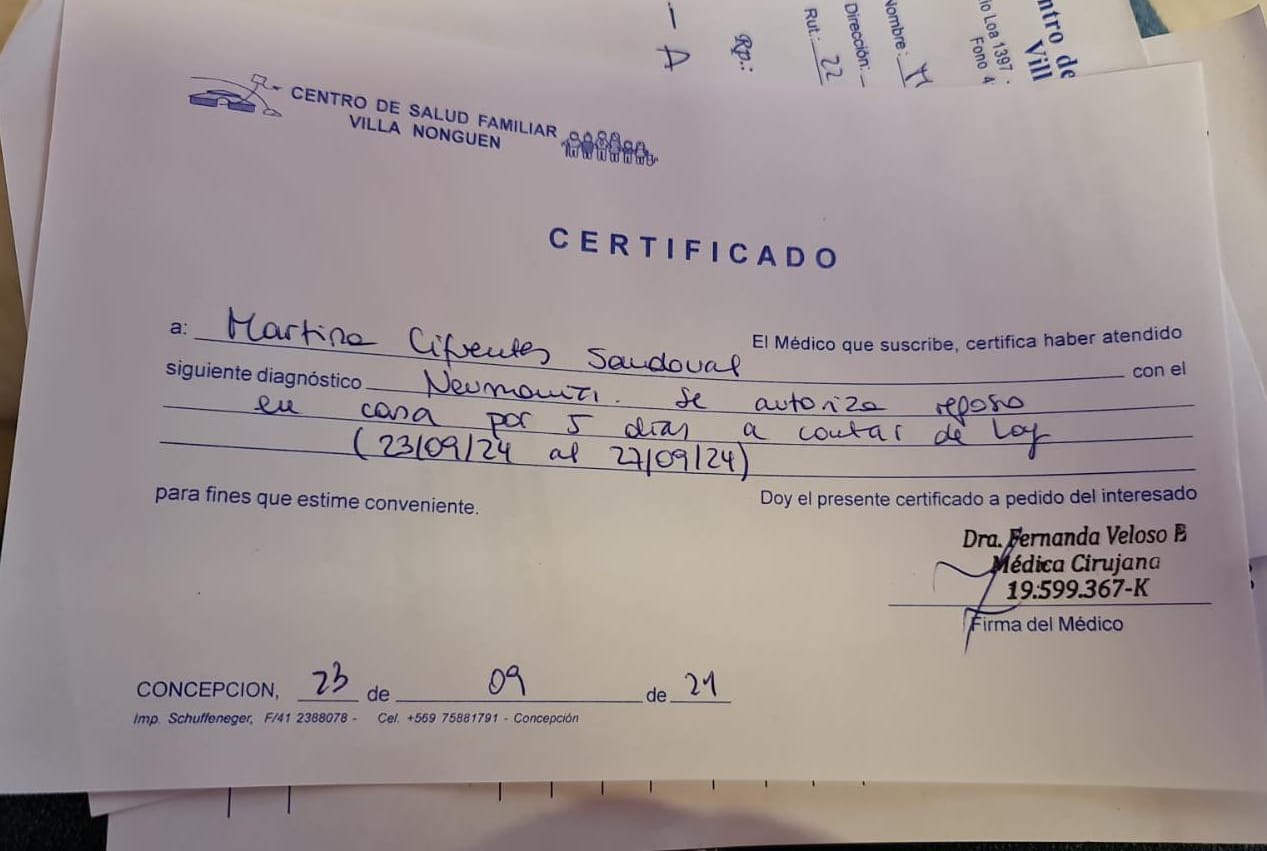 ntro de
Vill
io Loa 1397 -
Fono 4
Nombre:
Dirección:
Rut: 22
Rp.:
CENTRO DE SALUD FAMILIAR
VILLA NONGUEN
CERTIFICADO
El Médico que suscribe, certifica haber atendido
a: Martina Cifuentes Sandoval con el
siguiente diagnóstico Neumonía. Se autoriza reposo
en casa por 5 días a contar de hoy
(23/09/24 al 27/09/24)
Doy el presente certificado a pedido del interesado
para fines que estime conveniente.
Dra. Fernanda Veloso B
Médica Cirujana
19.599.367-K
Firma del Médico
CONCEPCION, 23 de 09 de 24
Imp. Schuffeneger, F/41 2388078 - Cel. +569 75881791 - Concepción